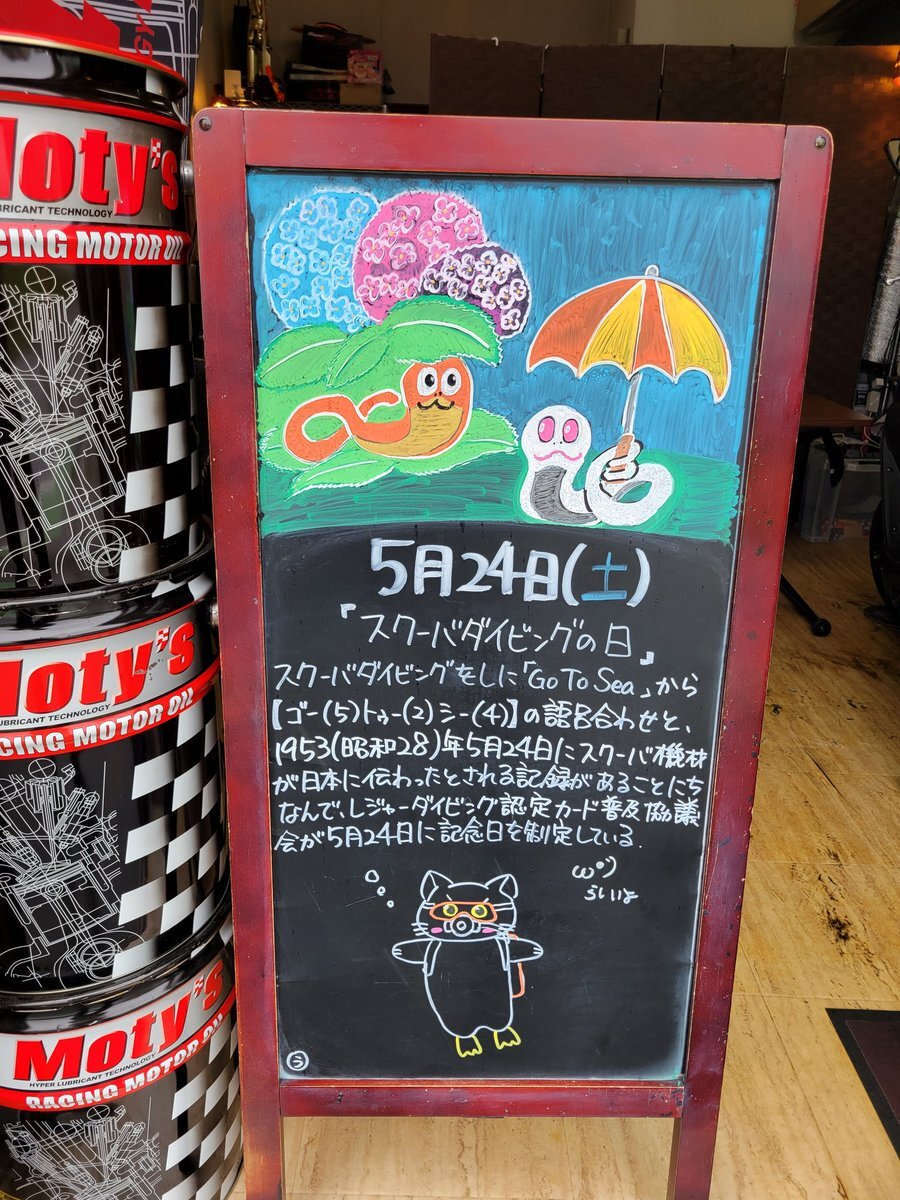 Moty's
LUBRICANT TECHNOLOGY
RACING MOTOR OIL
Moty's
LUBRICANT TECHNOLOGY
RACING MOTOR OIL
Moty's
HYPER LUBRICANT TECHNOLOGY
RACING MOTOR OIL
5月24日(土)
「スクーバダイビングの日」
スクーバダイビングをしに「Go To Sea」から
【ゴー(5)トゥー(2)シー(4)】の語呂合わせと、
1953(昭和28)年5月24日にスクーバ機材
が日本に伝わったとされる記録があることにち
なんで、レジャーダイビング認定カード普及協議
会が5月24日に記念日を制定している.
ω°)
らしいよ
う